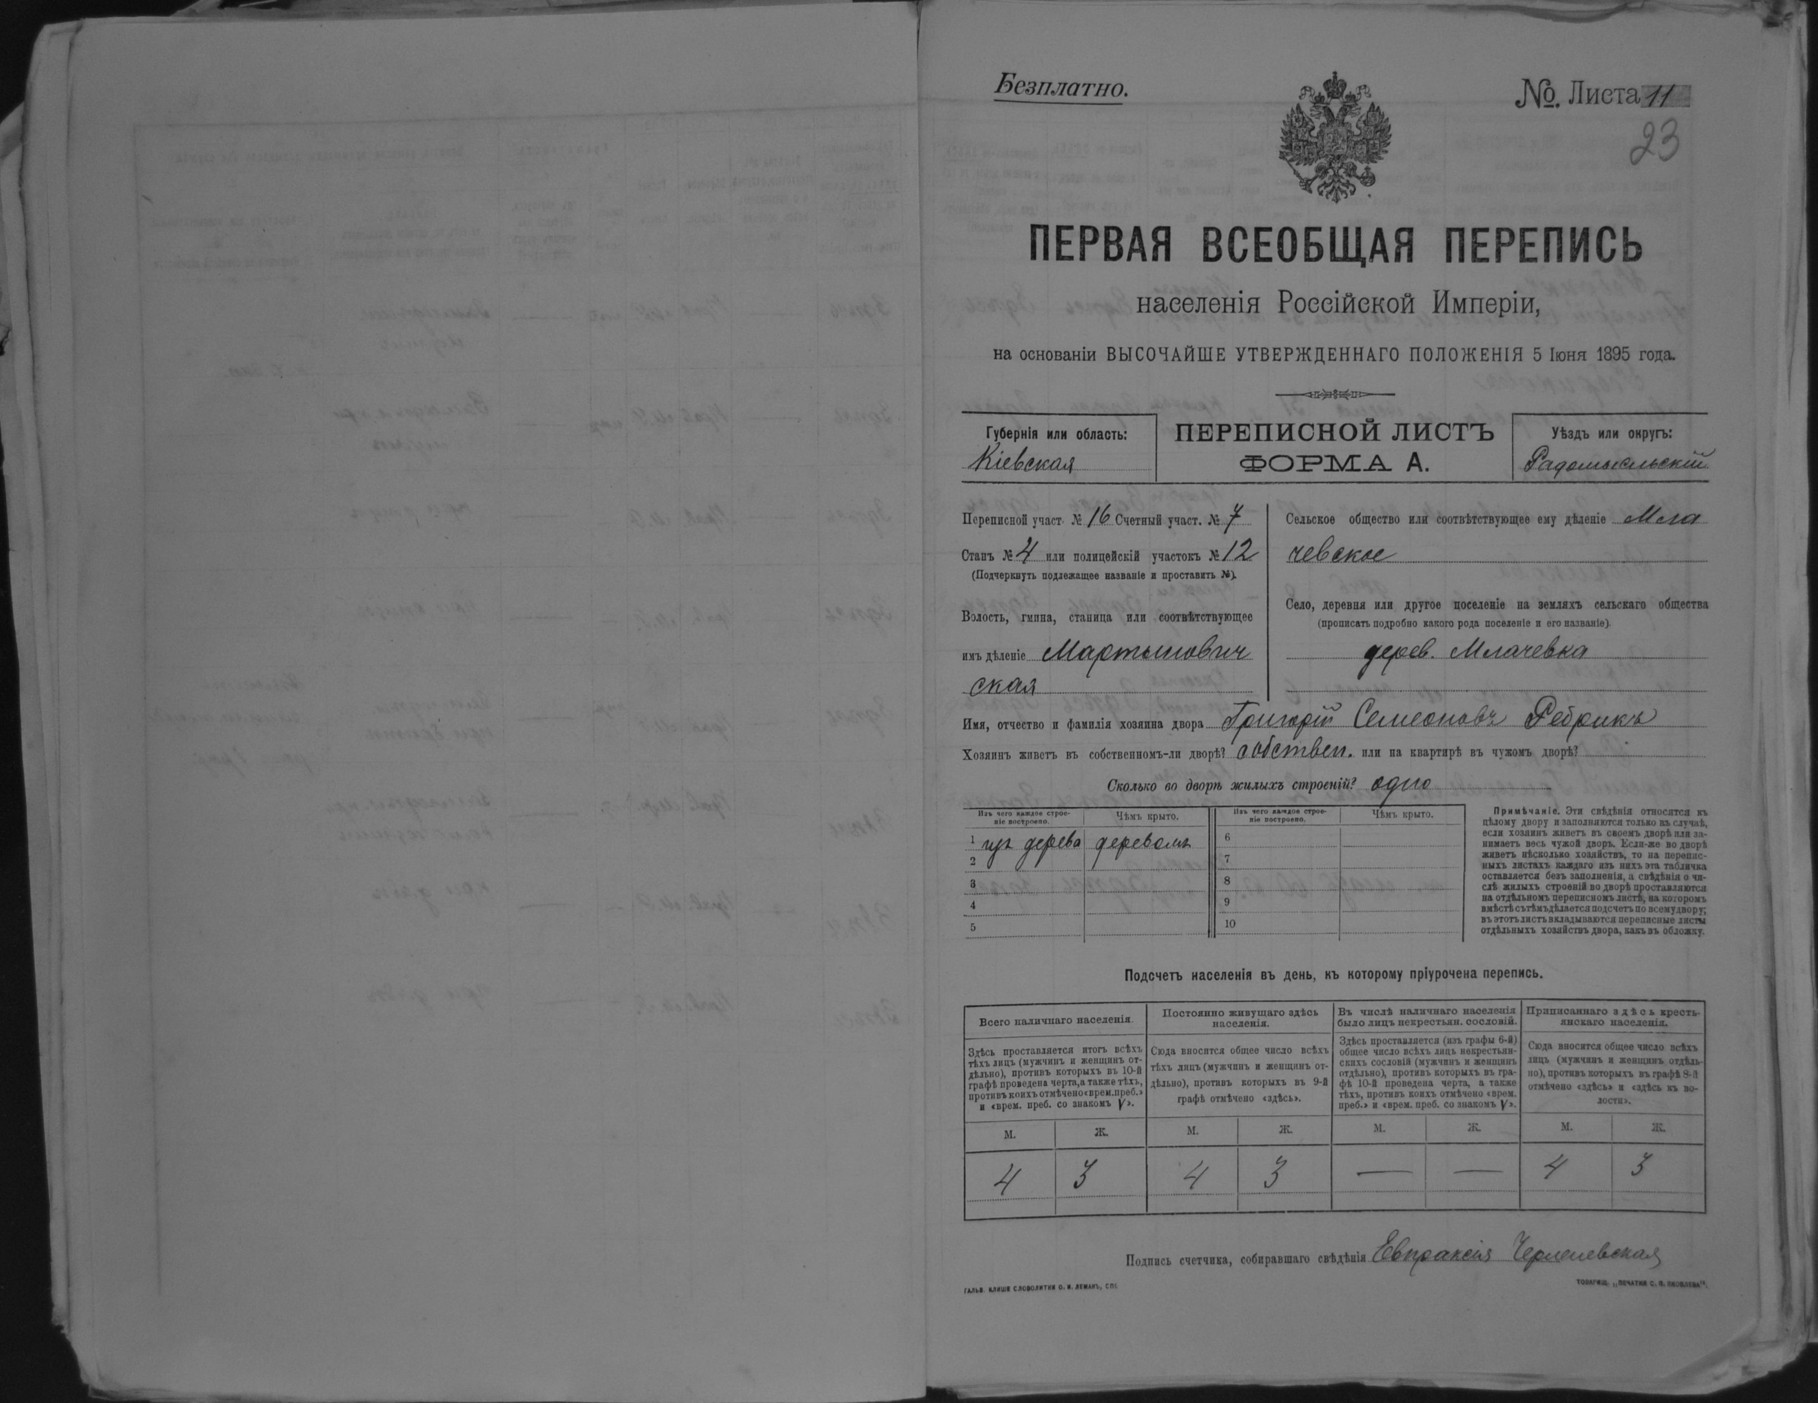 Безплатно.
№. Листа 11
23
ПЕРВАЯ ВСЕОБЩАЯ ПЕРЕПИСЬ
населенія Россійской Имперіи,
на основаніи ВЫСОЧАЙШЕ УТВЕРЖДЕННАГО ПОЛОЖЕНІЯ 5 Іюня 1895 года.
Губернія или область:
Кіевская
ПЕРЕПИСНОЙ ЛИСТЪ
ФОРМА А.
Уѣздъ или округъ:
Радомысльскій
Переписной участ. № 16 Счетный участ. № 7
Станъ № 4 или полицейскій участокъ № 12
(Подчеркнуть подлежащее названіе и проставить №).
Волость, гмина, станица или соотвѣтствующее
имъ дѣленіе Мартынович
ская
Сельское общество или соотвѣтствующее ему дѣленіе Мла
чевское
Село, деревня или другое поселеніе на земляхъ сельскаго общества
(прописать подробно какого рода поселеніе и его названіе)
дерев. Млачевка
Имя, отчество и фамилія хозяина двора Григорій Семеоновъ Ребрикъ
Хозяинъ живетъ въ собственномъ-ли дворѣ? собствен. или на квартирѣ въ чужомъ дворѣ?
Сколько во дворѣ жилыхъ строеній? одно
Изъ чего каждое строе-
ніе построено.
Чѣмъ крыто.
1 изъ дерева деревомъ
2
3
4
5
Изъ чего каждое строе-
ніе построено.
Чѣмъ крыто.
6
7
8
9
10
Примѣчаніе. Эти свѣдѣнія относятся къ
цѣлому двору и заполняются только въ случаѣ,
если хозяинъ живетъ въ своемъ дворѣ или за-
нимаетъ весь чужой дворъ. Если-же во дворѣ
живетъ нѣсколько хозяйствъ, то на перепис-
ныхъ листахъ каждаго изъ нихъ эта табличка
оставляется безъ заполненія, а свѣдѣнія о чи-
слѣ жилыхъ строеній во дворѣ проставляются
на отдѣльномъ переписномъ листѣ, на которомъ
вмѣстѣ съ тѣмъ дѣлается подсчетъ по всему двору;
въ этотъ листъ вкладываются переписные листы
отдѣльныхъ хозяйствъ двора, какъ въ обложку.
Подсчетъ населенія въ день, къ которому пріурочена перепись.
Всего наличнаго населенія.
Здѣсь проставляется итогъ всѣхъ
тѣхъ лицъ (мужчинъ и женщинъ от-
дѣльно), противъ которыхъ въ 10-й
графѣ проведена черта, а также тѣхъ,
противъ коихъ отмѣчено «врем. преб.»
и «врем. преб. со знакомъ V».
Постоянно живущаго здѣсь
населенія.
Сюда вносится общее число всѣхъ
тѣхъ лицъ (мужчинъ и женщинъ от-
дѣльно), противъ которыхъ въ 9-й
графѣ отмѣчено «здѣсь».
Въ числѣ наличнаго населенія
было лицъ некрестьян. сословій.
Здѣсь проставляется (изъ графы 6-й)
общее число всѣхъ лицъ некрестьян-
скихъ сословій (мужчинъ и женщинъ
отдѣльно), противъ которыхъ въ гра-
фѣ 10-й проведена черта, а также
тѣхъ, противъ коихъ отмѣчено «врем.
преб.» и «врем. преб. со знакомъ V».
Приписаннаго здѣсь кресть-
янскаго населенія.
Сюда вносится общее число всѣхъ
лицъ (мужчинъ и женщинъ отдѣль-
но), противъ которыхъ въ графѣ 8-й
отмѣчено «здѣсь» и «здѣсь въ во-
лости».
М. Ж. М. Ж. М. Ж. М. Ж.
4 3 4 3 — — 4 3
Подпись счетчика, собиравшаго свѣдѣнія Евпраксія
ГАЛЬВ. КЛИШЕ СЛОВОЛИТНИ О. И. ЛЕМАНЪ, СПБ.
ТОВАРИЩ. „ПЕЧАТНИ С. П. ЯКОВЛЕВА“.